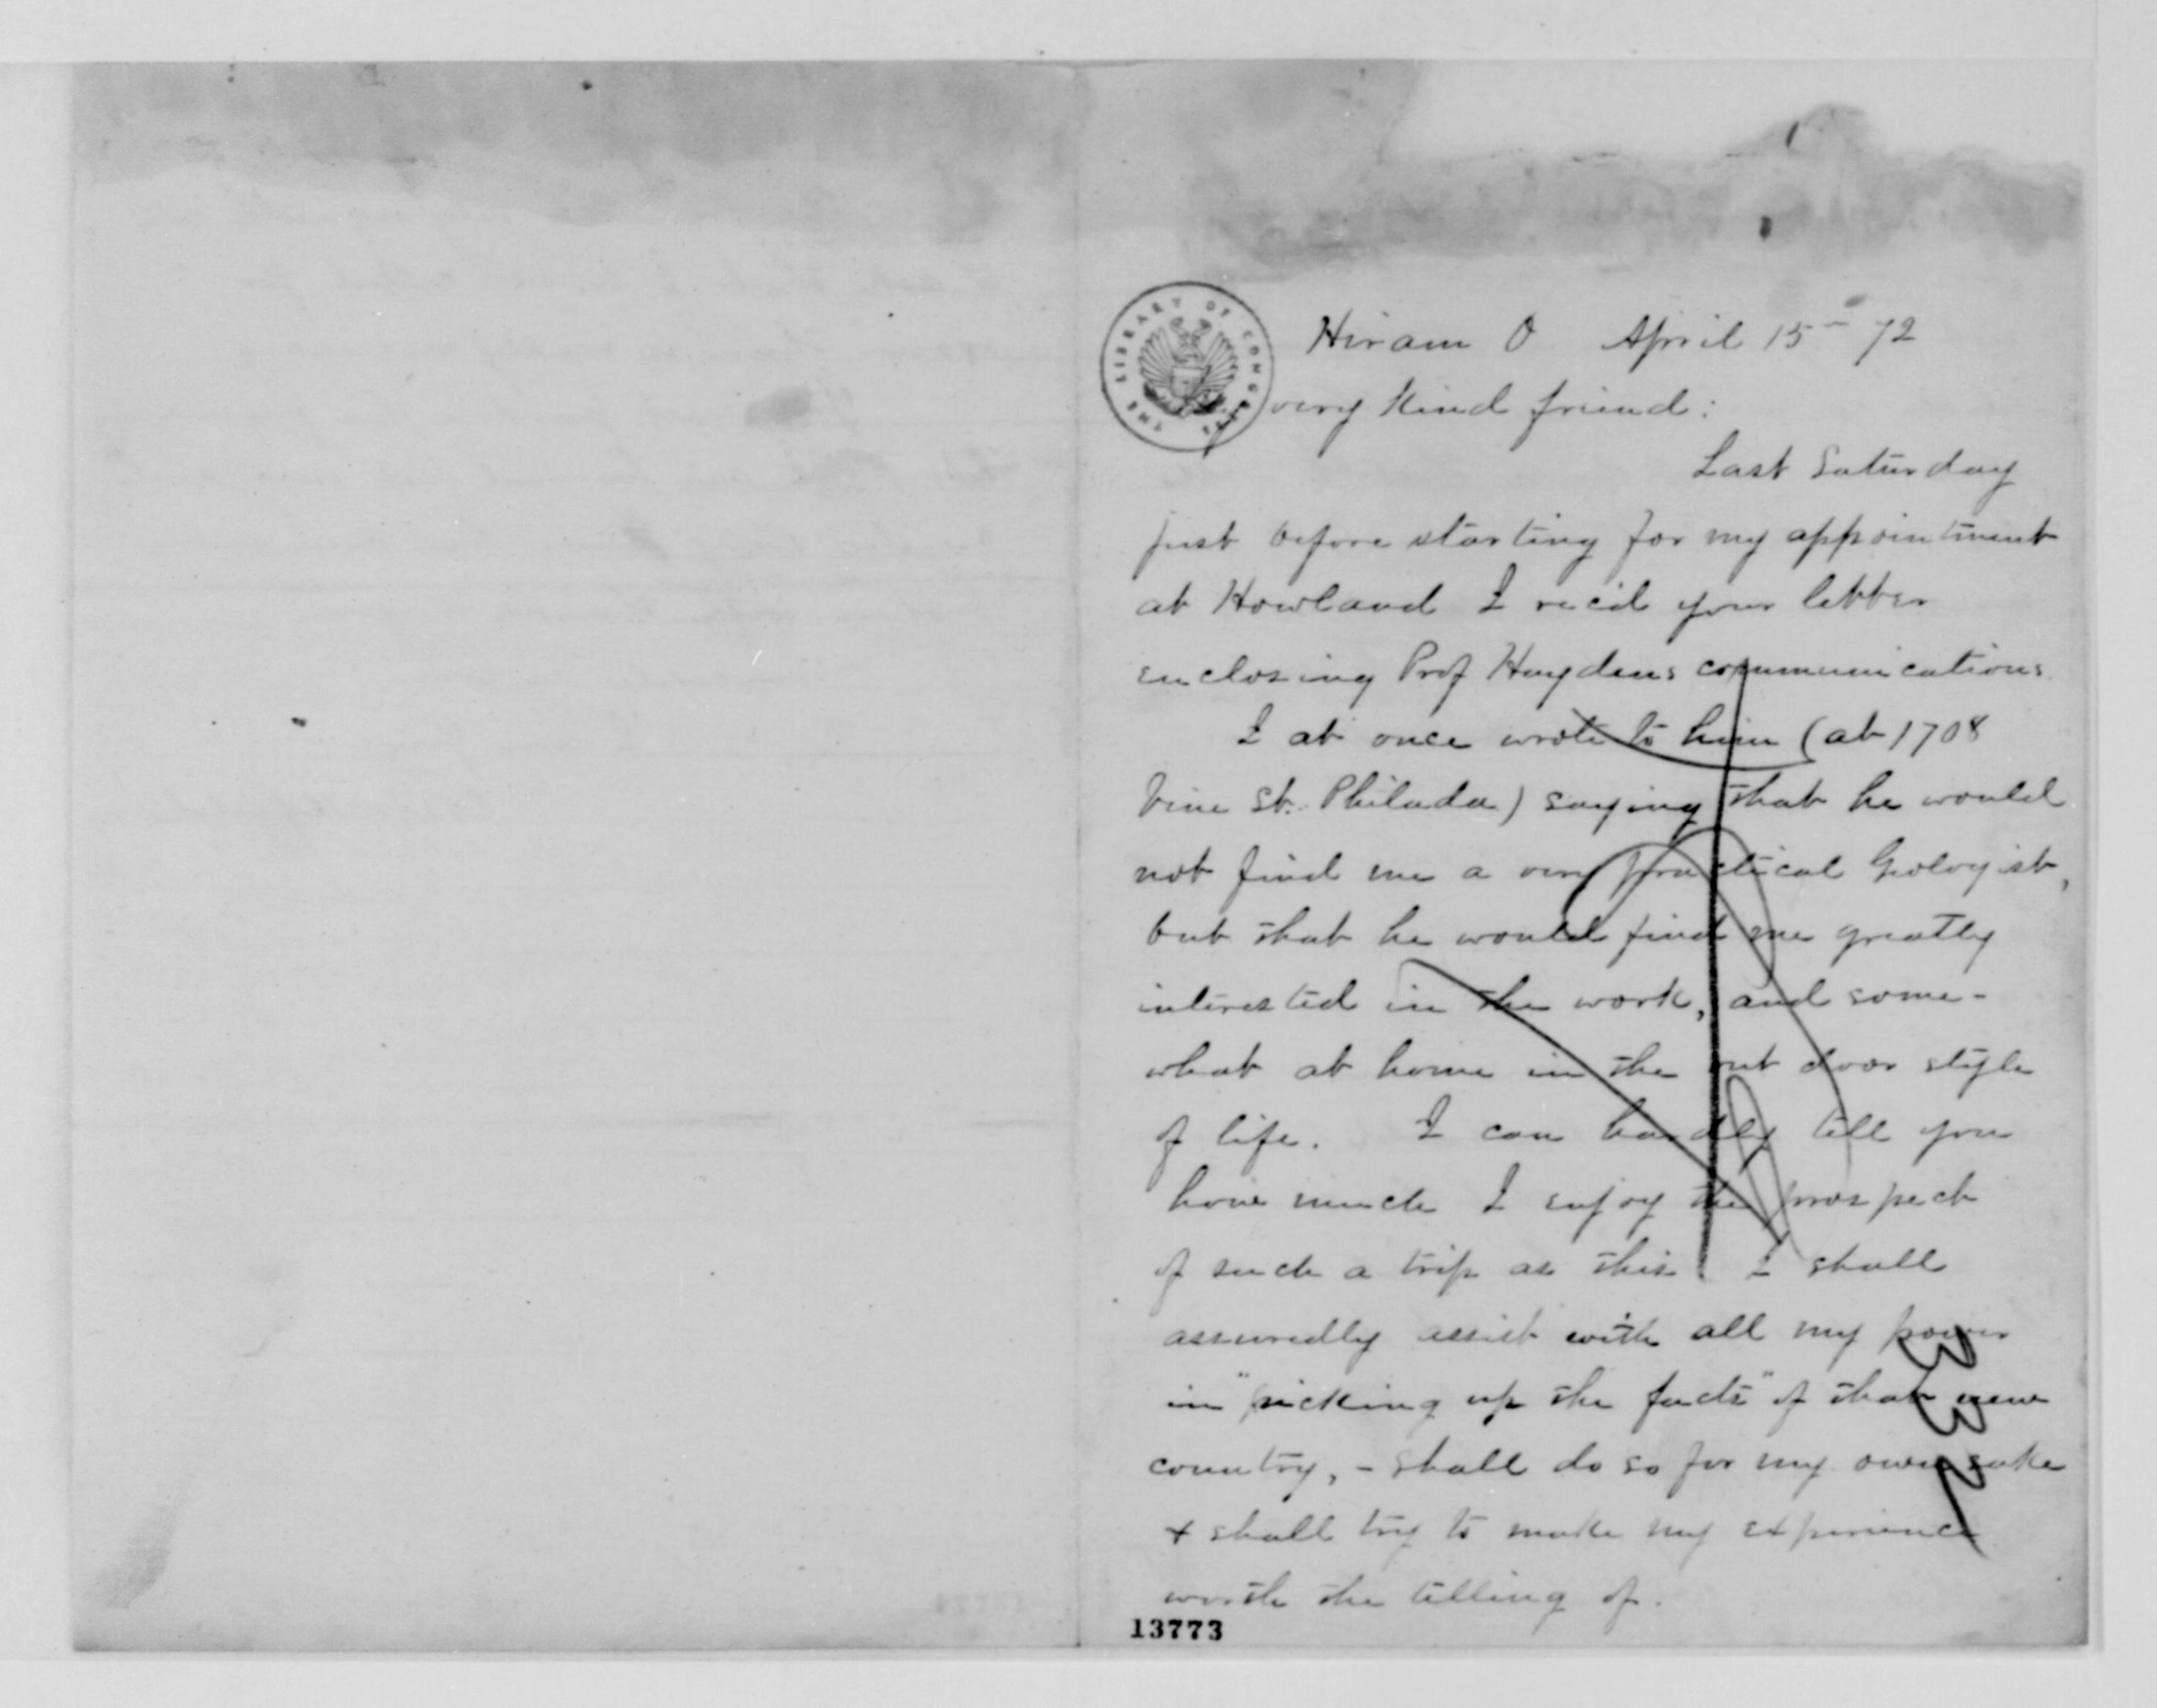 THE LIBRARY OF CONGRESS
Hiram O April 15th 72
My very Kind friend:
Last Saturday
just before starting for my appointment
at Howland I rec'd your letter
enclosing Prof Haydens communications.
I at once wrote to him (at 1708
Vine St. Philada) saying that he would
not find me a very practical Geologist,
but that he would find me greatly
interested in the work, and some-
what at home in the out door style
of life. I can hardly tell you
how much I enjoy the prospect
of such a trip as this I shall
assuredly assist with all my power
in "picking up the facts" of that new
country, - shall do so for my own sake
+ shall try to make my experience
worth the telling of.
13773